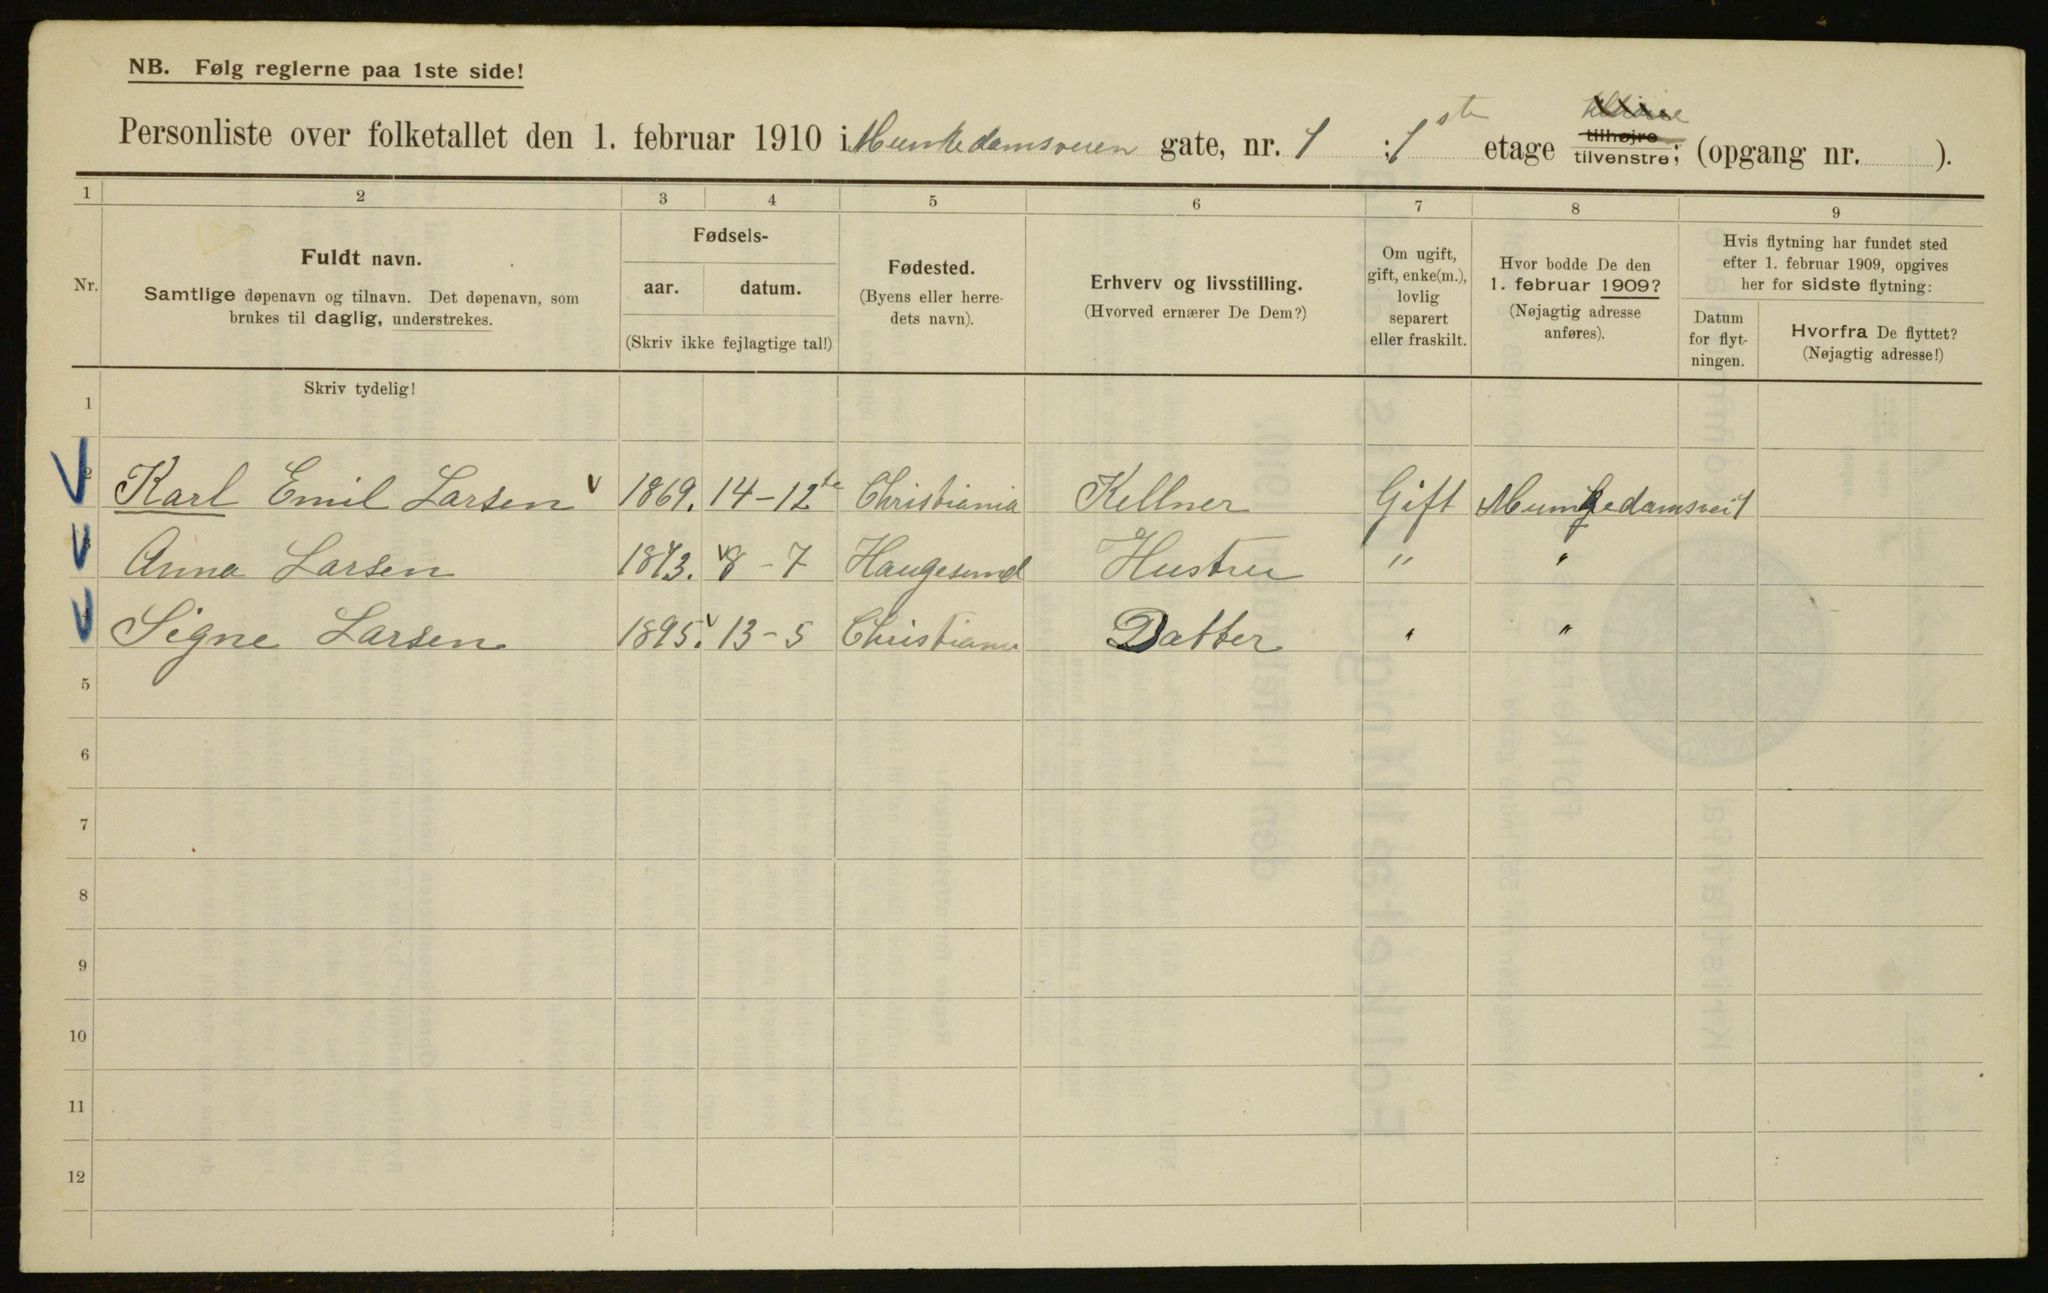 NB. Følg reglerne paa 1ste side!
Personliste over folketallet den 1. februar 1910 i Munkedamsveien gate, nr. 1 : 1ste etage tilhøjre tilvenstre; (opgang nr. ).
1 2 3 4 5 6 7 8 9
Nr.
Fuldt navn.
Samtlige døpenavn og tilnavn. Det døpenavn, som
brukes til daglig, understrekes.
Skriv tydelig!
Fødsels-
aar. datum.
(Skriv ikke fejlagtige tal!)
Fødested.
(Byens eller herre-
dets navn).
Erhverv og livsstilling.
(Hvorved ernærer De Dem?)
Om ugift,
gift, enke(m.),
lovlig
separert
eller fraskilt.
Hvor bodde De den
1. februar 1909?
(Nøjagtig adresse
anføres).
Hvis flytning har fundet sted
efter 1. februar 1909, opgives
her for sidste flytning:
Datum
for flyt-
ningen.
Hvorfra De flyttet?
(Nøjagtig adresse!)
1
2 Karl Emil Larsen 1869. 14-12te Christiania Kellner Gift Munkedamsvei 1
3 Anna Larsen 1873. 8-7 Haugesund Hustru " "
4 Signe Larsen 1895. 13-5 Christiania Datter " "
5
6
7
8
9
10
11
12